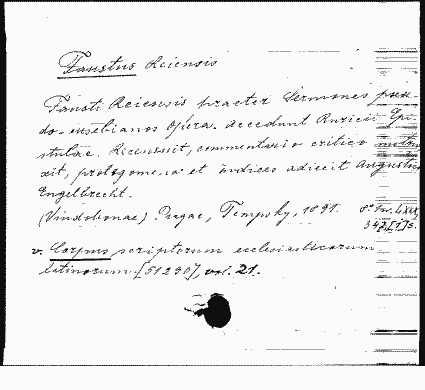 Faustus Reiensis
Fausti Reiensis praeter Sermones pseu-
do-eusebianos opera. Accedunt Ruricii Epi-
stulae. Recensuit, commentario critico instru-
xit, prolegomena et indices adiecit Augustus
Engelbrecht.
(Vindobonae) Pragae, Tempsky, 1891. 8°
347 [1] S.
v. Corpus scriptorum ecclesiasticorum
latinorum [51290], vol. 21.